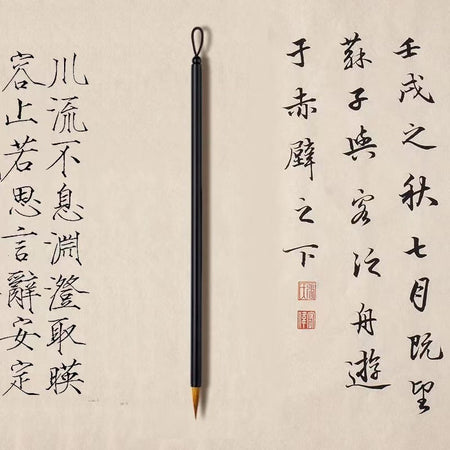 壬戌之秋七月既望
蘇子與客泛舟遊
于赤壁之下
川流不息淵澄取暎
容止若思言辭安定